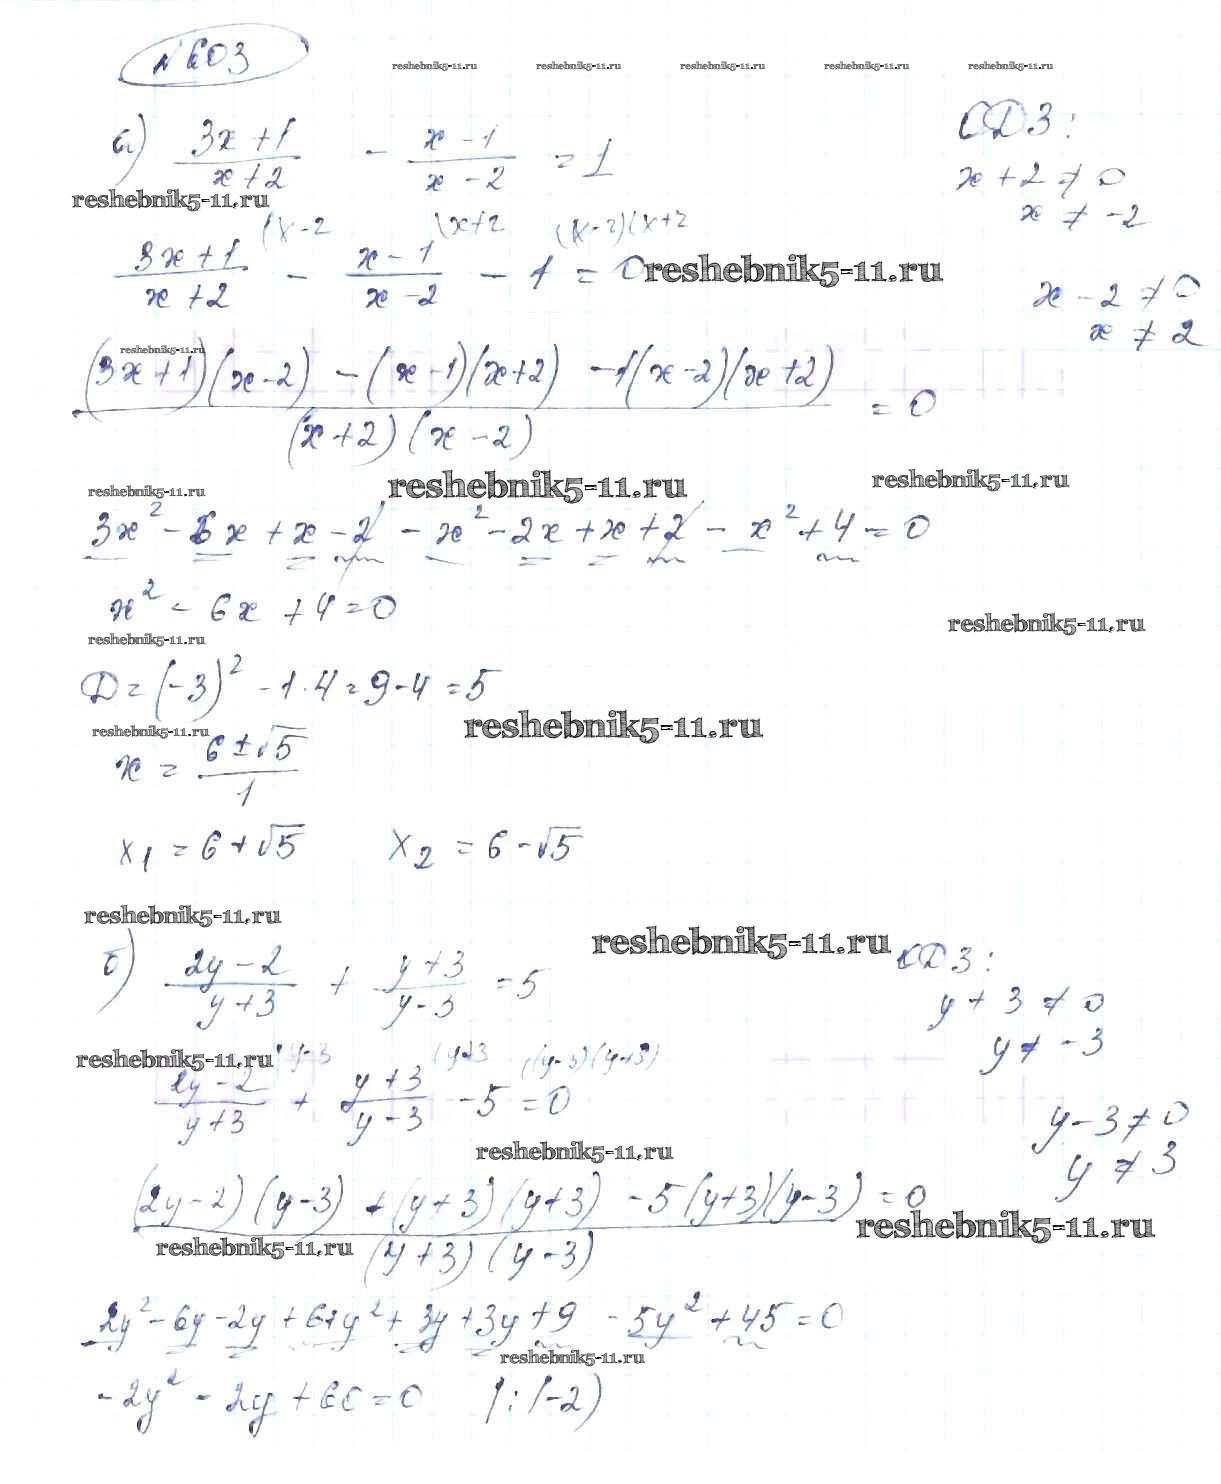 №603
reshebnik5-11.ru reshebnik5-11.ru reshebnik5-11.ru reshebnik5-11.ru reshebnik5-11.ru
а) (3x+1)/(x+2) - (x-1)/(x-2) = 1
ОДЗ:
x+2≠0
x≠-2
x-2≠0
x≠2
reshebnik5-11.ru
(3x+1)/(x+2) (x-2 - (x-1)/(x-2) \x+2 - 1 = 0 (x-2)(x+2
reshebnik5-11.ru
reshebnik5-11.ru
((3x+1)(x-2) - (x-1)(x+2) - 1(x-2)(x+2))/((x+2)(x-2)) = 0
reshebnik5-11.ru reshebnik5-11.ru reshebnik5-11.ru
3x² - 6x + x - 2 - x² - 2x + x + 2 - x² + 4 = 0
x² - 6x + 4 = 0
reshebnik5-11.ru reshebnik5-11.ru
D = (-3)² - 1·4 = 9-4 = 5
reshebnik5-11.ru reshebnik5-11.ru
x = (6±√5)/1
x₁ = 6+√5 x₂ = 6-√5
reshebnik5-11.ru reshebnik5-11.ru
б) (2y-2)/(y+3) + (y+3)/(y-3) = 5
ОДЗ:
y+3≠0
y≠-3
y-3≠0
y≠3
reshebnik5-11.ru
(2y-2)/(y+3) y-3 + (y+3)/(y-3) (y+3 - 5 = 0 (y-3)(y+3)
reshebnik5-11.ru
((2y-2)(y-3) + (y+3)(y+3) - 5(y+3)(y-3))/((y+3)(y-3)) = 0
reshebnik5-11.ru reshebnik5-11.ru
2y² - 6y - 2y + 6 + y² + 3y + 3y + 9 - 5y² + 45 = 0
reshebnik5-11.ru
-2y² - 2y + 60 = 0 |:(-2)